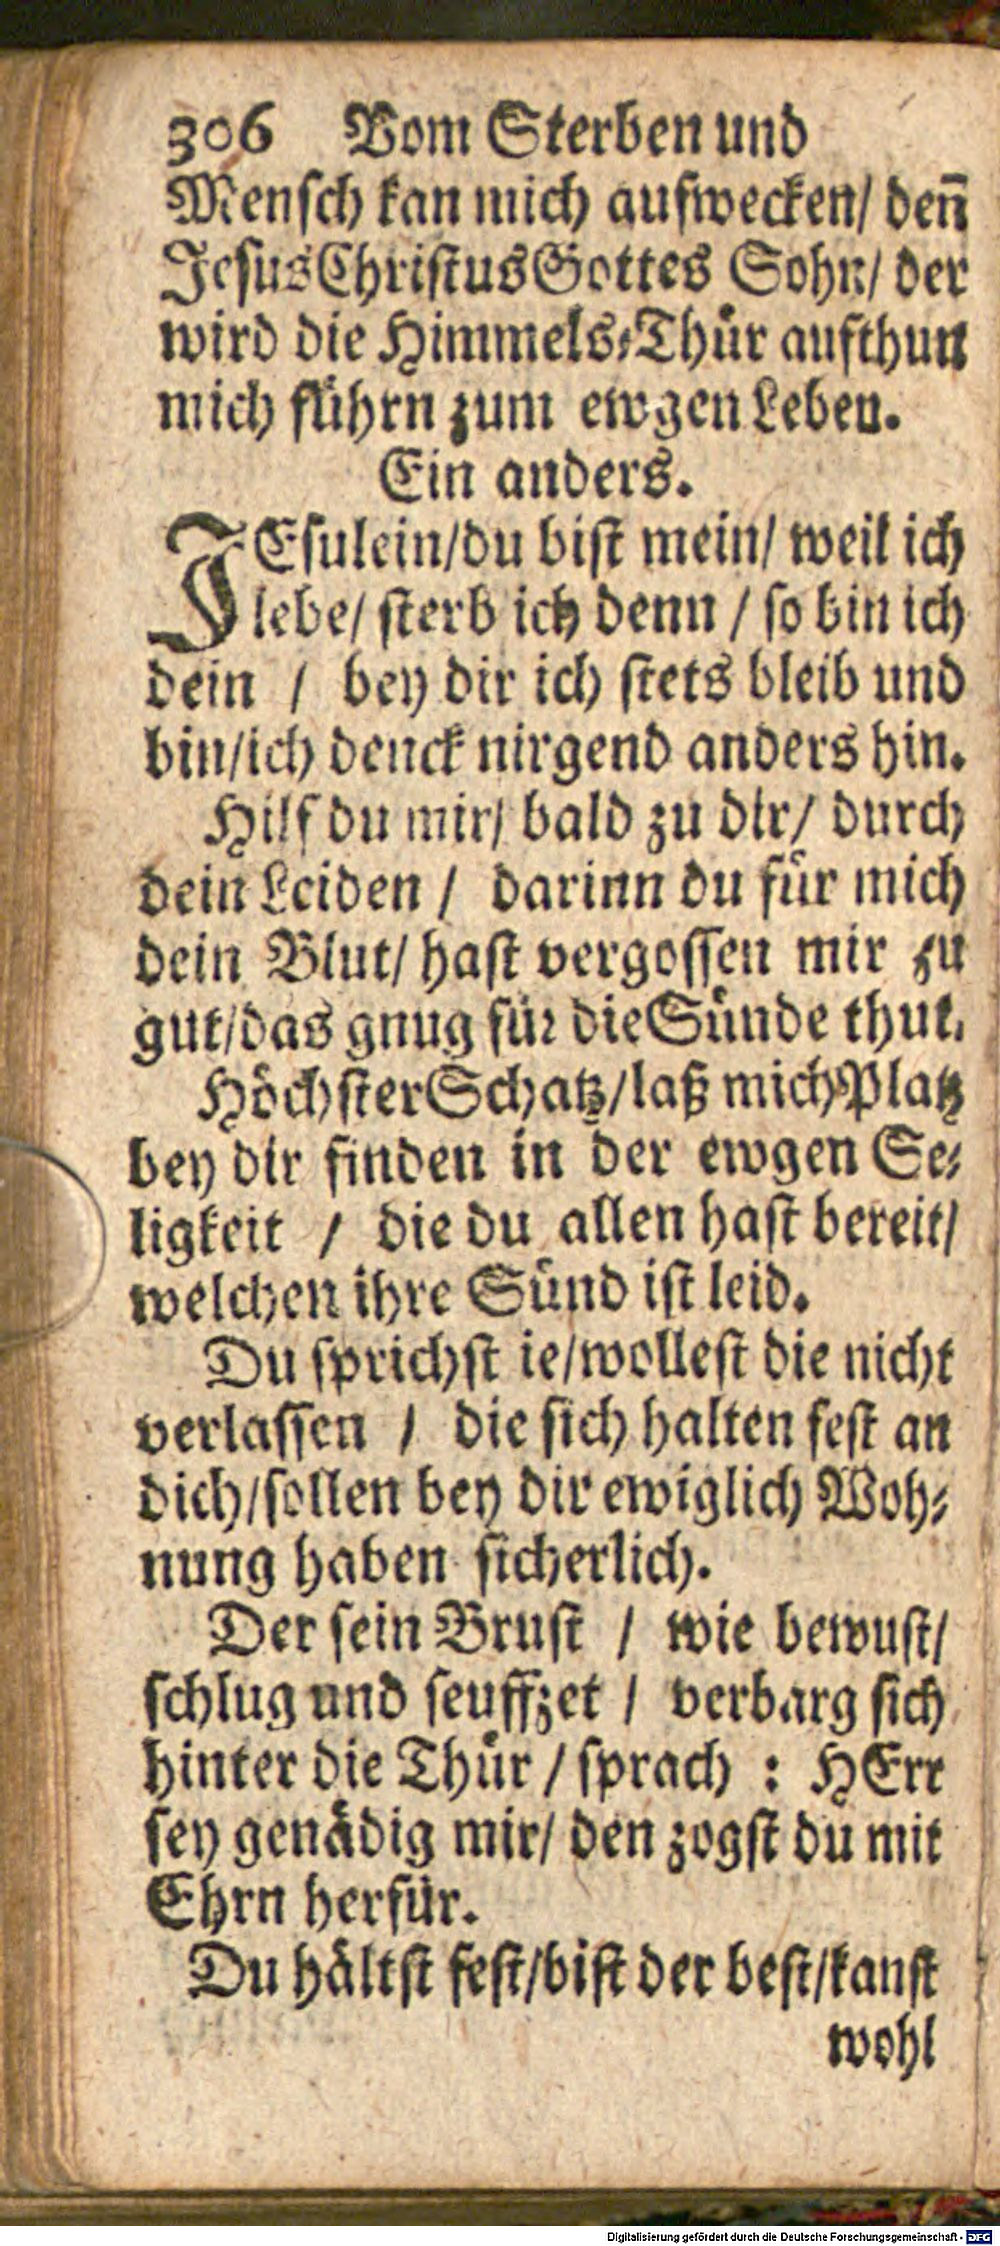 306 Vom Sterben und
Mensch kan mich aufwecken/ deñ
Jesus Christus Gottes Sohn/ der
wird die Himmels-Thür aufthun
mich führn zum ewgen Leben.
Ein anders.
JEsulein/du bist mein/ weil ich
lebe/ sterb ich denn / so bin ich
dein / bey dir ich stets bleib und
bin/ich denck nirgend anders hin.
Hilf du mir/ bald zu dir/ durch
dein Leiden / darinn du für mich
dein Blut/ hast vergossen mir zu
gut/das gnug für die Sünde thut.
Höchster Schatz/laß mich Platz
bey dir finden in der ewgen Se-
ligkeit / die du allen hast bereit/
welchen ihre Sünd ist leid.
Du sprichst ie/wollest die nicht
verlassen / die sich halten fest an
dich/sollen bey dir ewiglich Woh-
nung haben sicherlich.
Der sein Brust / wie bewust/
schlug und seuffzet / verbarg sich
hinter die Thür / sprach : HErr
sey genädig mir/ den zogst du mit
Ehrn herfür.
Du hältst fest/bist der best/kanst
wohl
Digitalisierung gefördert durch die Deutsche Forschungsgemeinschaft - DFG